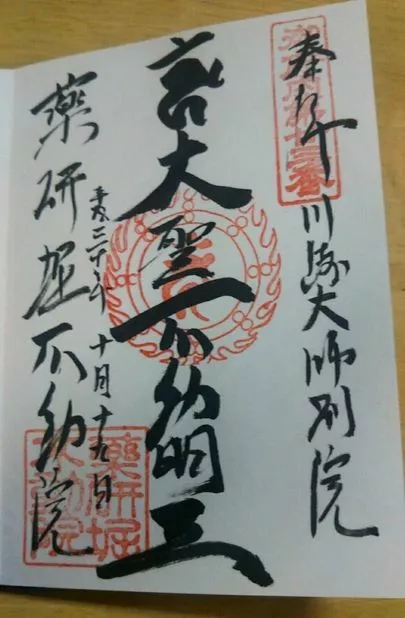 奉拝 川崎大師別院
大聖不動明王
十月十九日
薬研堀不動院
薬研堀
不動院